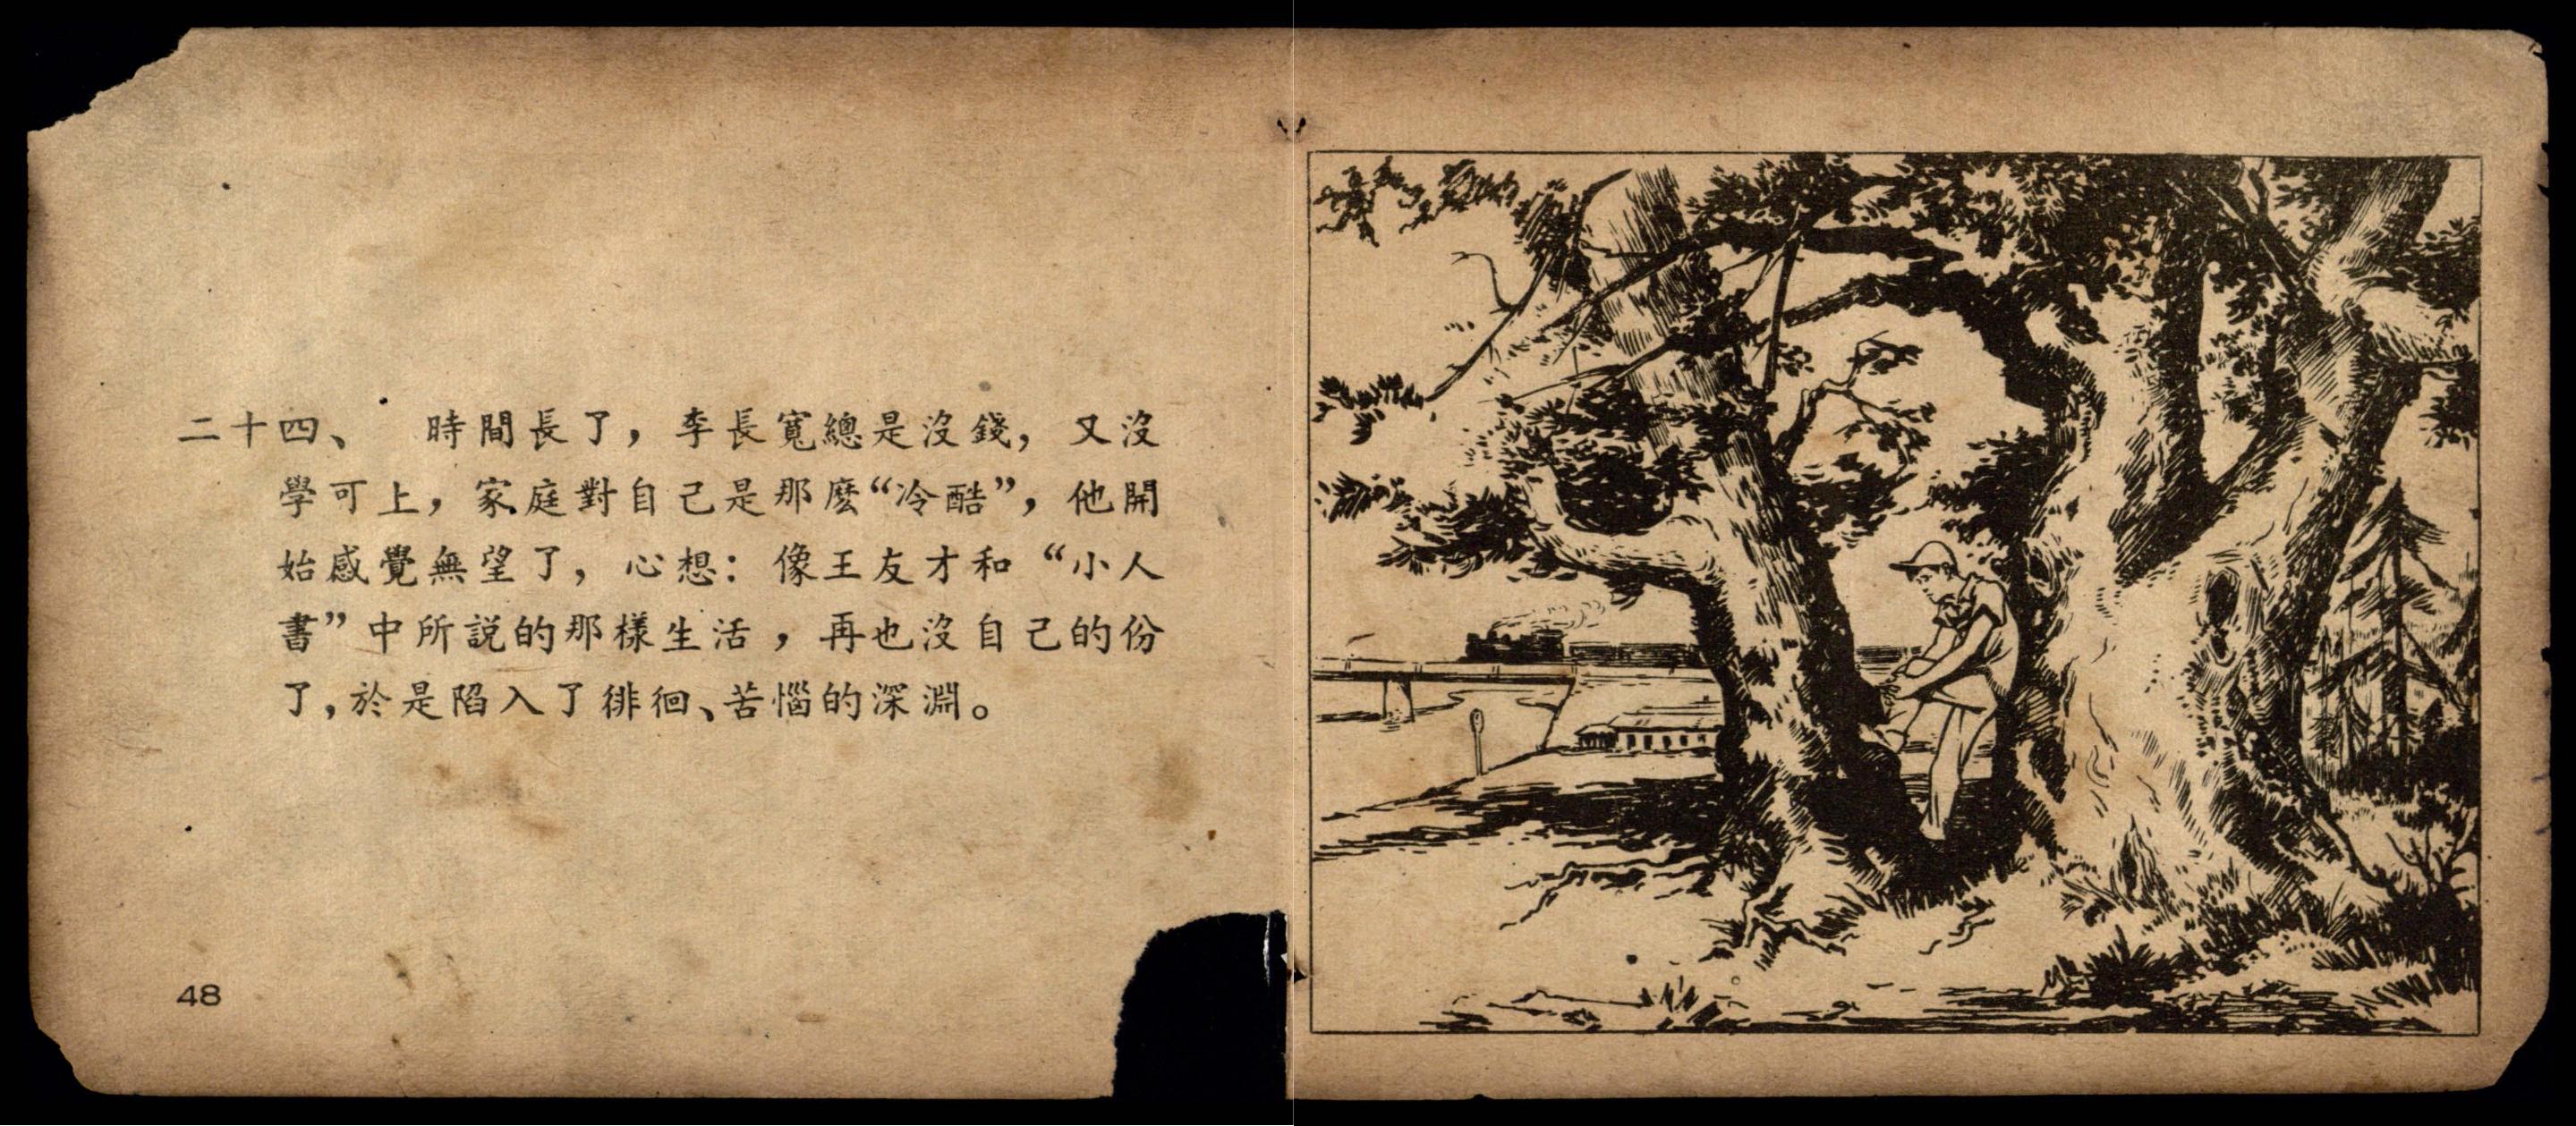 二十四、 時間長了，李長寬總是沒錢，又沒
學可上，家庭對自己是那麽“冷酷”，他開
始感覺無望了，心想：像王友才和“小人
書”中所説的那樣生活，再也沒自己的份
了，於是陷入了徘徊、苦惱的深淵。
48